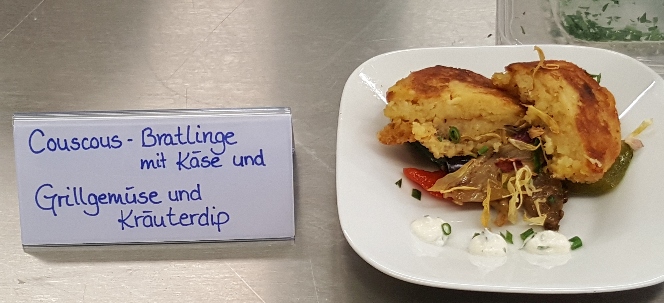 Couscous - Bratlinge
mit Käse und
Grillgemüse und
Kräuterdip